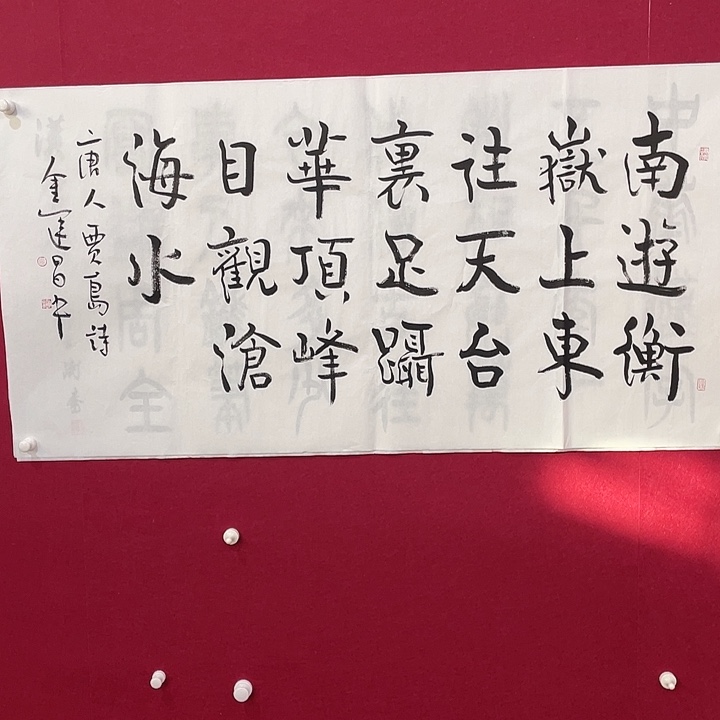 南遊衡
嶽上東
往天台
裏足躡
華頂峰
目觀滄
海水
唐人賈島詩
金運昌